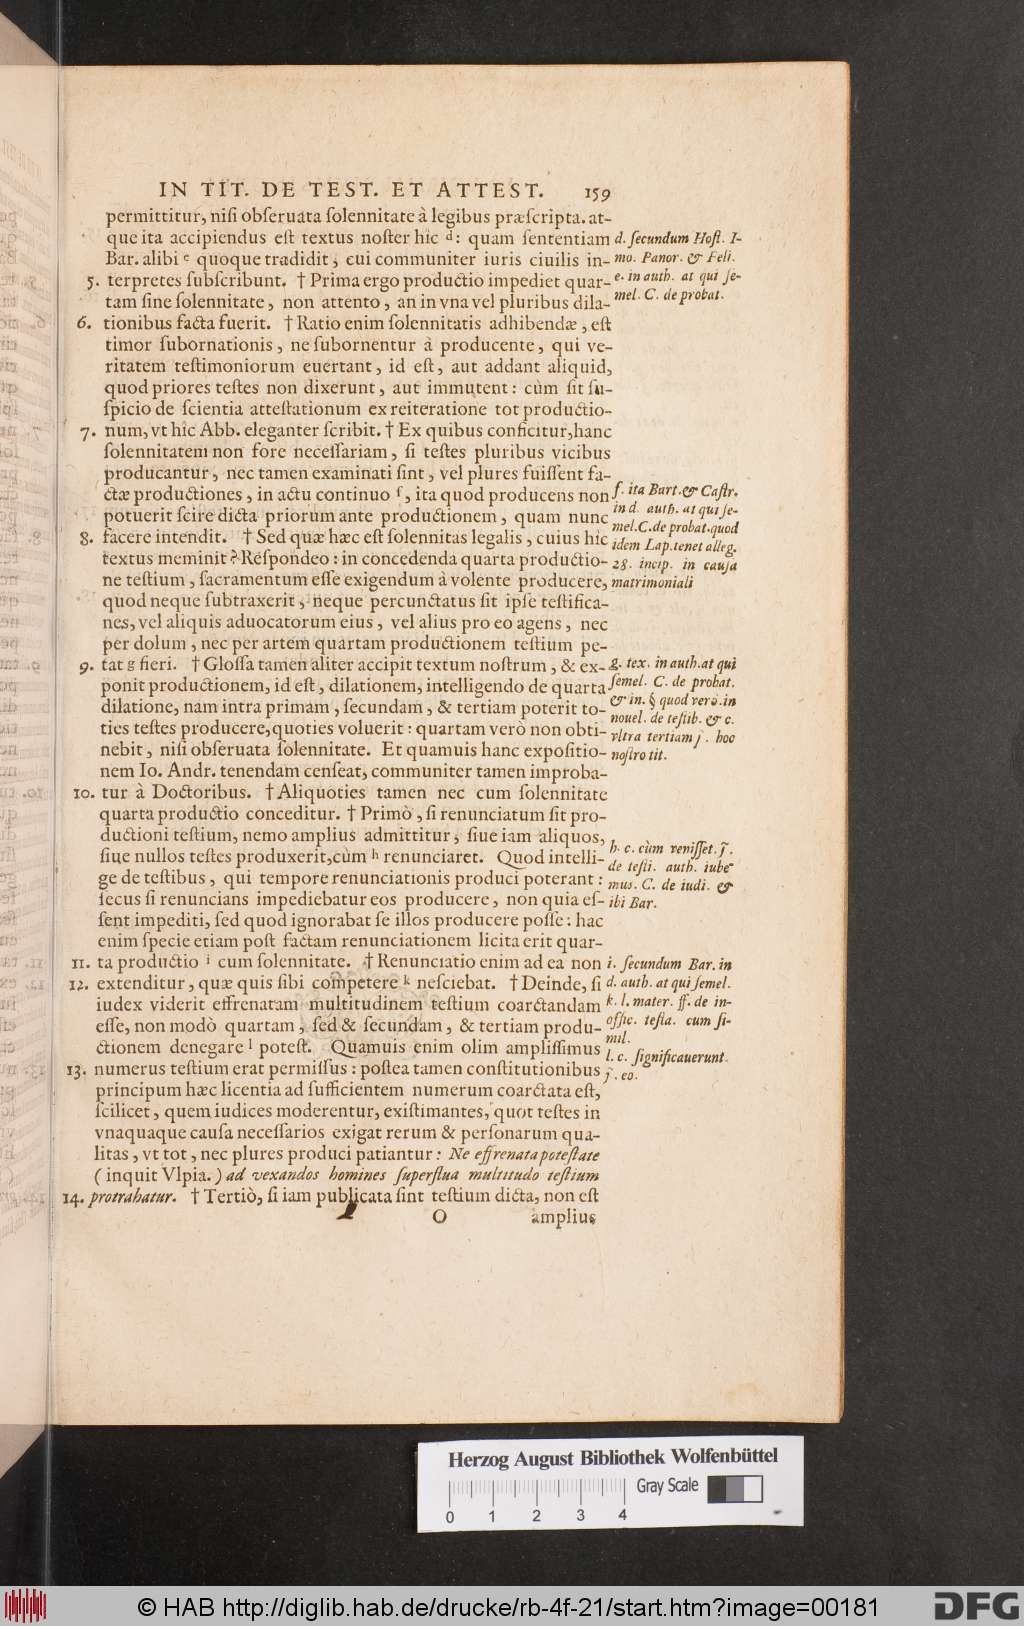 IN TIT. DE TEST. ET ATTEST. 159
permittitur, nisi obseruata solennitate à legibus præscripta. at-
que ita accipiendus est textus noster hic d: quam sententiam
Bar. alibi e quoque tradidit, cui communiter iuris ciuilis in-
5. terpretes subscribunt. † Prima ergo productio impediet quar-
tam sine solennitate, non attento, an in vna vel pluribus dila-
6. tionibus facta fuerit. † Ratio enim solennitatis adhibendæ, est
timor subornationis, ne subornentur à producente, qui ve-
ritatem testimoniorum euertant, id est, aut addant aliquid,
quod priores testes non dixerunt, aut immutent: cùm sit su-
spicio de scientia attestationum ex reiteratione tot productio-
7. num, vt hic Abb. eleganter scribit. † Ex quibus conficitur, hanc
solennitatem non fore necessariam, si testes pluribus vicibus
producantur, nec tamen examinati sint, vel plures fuissent fa-
ctæ productiones, in actu continuo f, ita quod producens non
potuerit scire dicta priorum ante productionem, quam nunc
8. facere intendit. † Sed quæ hæc est solennitas legalis, cuius hic
textus meminit? Respondeo: in concedenda quarta productio-
ne testium, sacramentum esse exigendum à volente producere,
quod neque subtraxerit, neque percunctatus sit ipse testifica-
nes, vel aliquis aduocatorum eius, vel alius pro eo agens, nec
per dolum, nec per artem quartam productionem testium pe-
9. tat g fieri. † Glossa tamen aliter accipit textum nostrum, & ex-
ponit productionem, id est, dilationem, intelligendo de quarta
dilatione, nam intra primam, secundam, & tertiam poterit to-
ties testes producere, quoties voluerit: quartam verò non obti-
nebit, nisi obseruata solennitate. Et quamuis hanc expositio-
nem Io. Andr. tenendam censeat, communiter tamen improba-
10. tur à Doctoribus. † Aliquoties tamen nec cum solennitate
quarta productio conceditur. † Primò, si renunciatum sit pro-
ductioni testium, nemo amplius admittitur, siue iam aliquos,
siue nullos testes produxerit, cùm h renunciaret. Quod intelli-
ge de testibus, qui tempore renunciationis produci poterant:
secus si renuncians impediebatur eos producere, non quia es-
sent impediti, sed quod ignorabat se illos producere posse: hac
enim specie etiam post factam renunciationem licita erit quar-
11. ta productio i cum solennitate. † Renunciatio enim ad ea non
12. extenditur, quæ quis sibi competere k nesciebat. † Deinde, si
iudex viderit effrenatam multitudinem testium coarctandam
esse, non modò quartam, sed & secundam, & tertiam produ-
ctionem denegare l potest. Quamuis enim olim amplissimus
13. numerus testium erat permissus: postea tamen constitutionibus
principum hæc licentia ad sufficientem numerum coarctata est,
scilicet, quem iudices moderentur, existimantes, quot testes in
vnaquaque causa necessarios exigat rerum & personarum qua-
litas, vt tot, nec plures produci patiantur: Ne effrenata potestate
(inquit Vlpia.) ad vexandos homines superflua multitudo testium
14. protrahatur. † Tertiò, si iam publicata sint testium dicta, non est
O amplius
d. secundum Host. I-
mo. Panor. & Feli.
e. in auth. at qui se-
mel. C. de probat.
f. ita Bart. & Castr.
in d. auth. at qui se-
mel. C. de probat. quod
idem Lap. tenet alleg.
28. incip. in causa
matrimoniali
g. tex. in auth. at qui
semel. C. de probat.
& in. § quod verò. in
nouel. de testib. & c.
vltra tertiam j. hoc
nostro tit.
h. c. cùm venisset. j.
de testi. auth. iube-
mus. C. de iudi. &
ibi Bar.
i. secundum Bar. in
d. auth. at qui semel.
k. l. mater. ff. de in-
offic. testa. cum si-
mil.
l. c. significauerunt.
j. eo.
Herzog August Bibliothek Wolfenbüttel
Gray Scale
0 1 2 3 4
© HAB http://diglib.hab.de/drucke/rb-4f-21/start.htm?image=00181
DFG